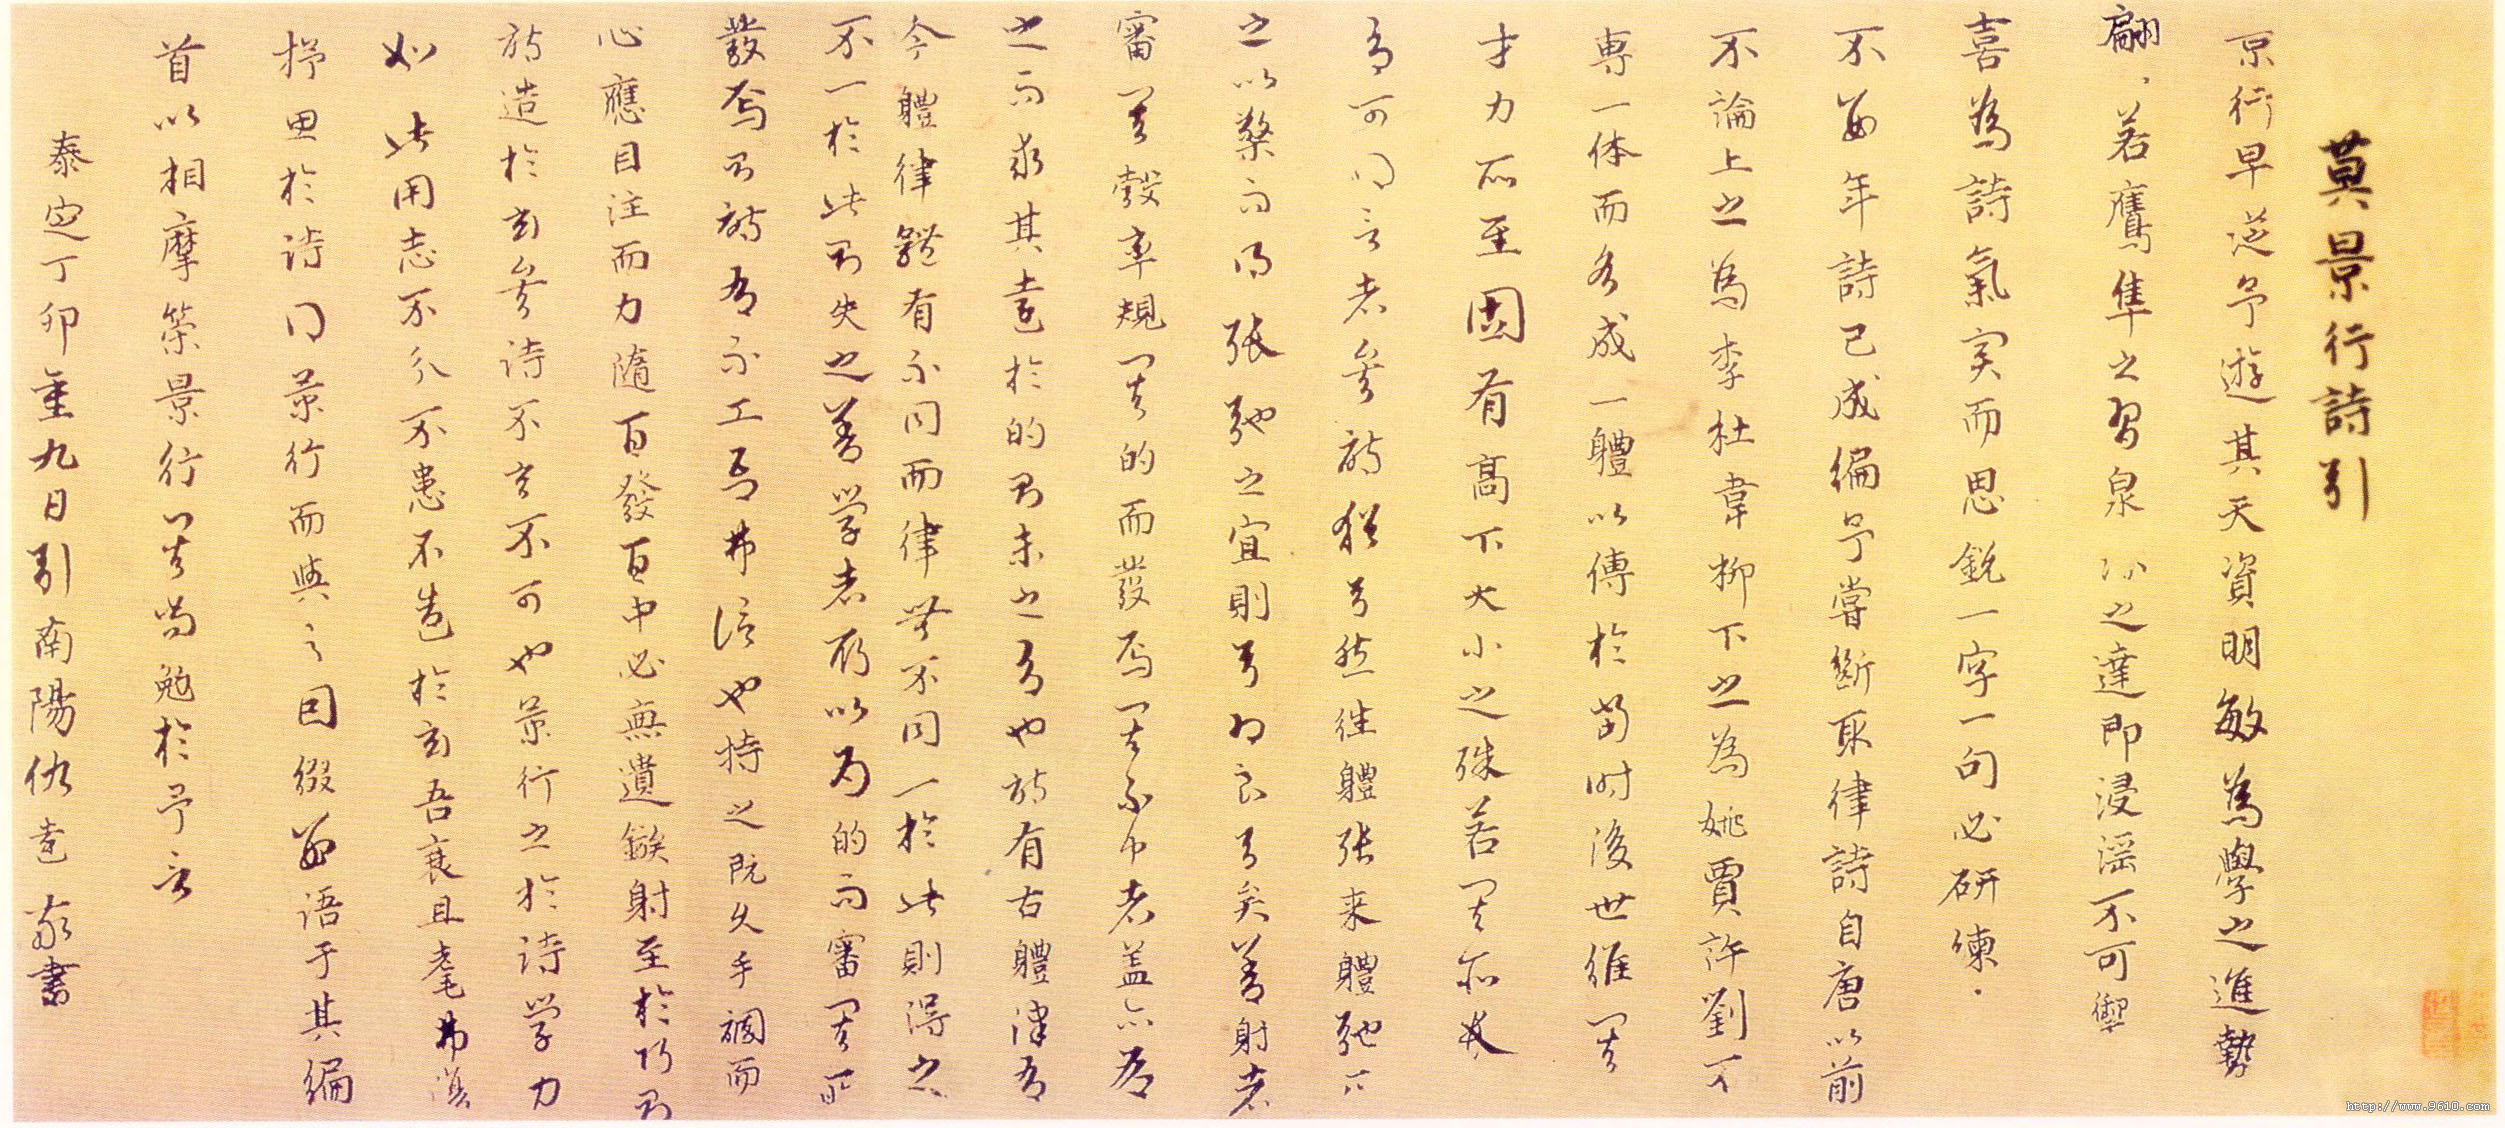 莫景行詩引
景行早從予遊其天資明敏為學之進勢
翩〻若鷹隼之習泉水之達即浸淫不可禦
喜為詩氣実而思銳一字一句必研煉〻
不數年詩已成編予嘗斷取律詩自唐以前
不論上之為李杜韋柳下之為姚賈許劉不
専一体而各成一體以傳於当时後世雖其
才力所至固有高下大小之殊若其所長
有可得言者矣詩猶弓然往體张来體弛必
之以檠而得張弛之宜則弓力良弓矣善射者
審其彀率規其的而發焉其不中者蓋亦有
之而求其遠於的則未之有也詩有古體律有
今體律體有不同而律無不同一於此則得之
不一於此則失之善學者所以为的而審其所
發焉則詩有不工焉弗信也持之既久手調而
心應目注而力隨百發百中必無遺鏃射至於巧則
詩造於玄矣诗不玄不可也景行之於詩学力
如此用志不分不患不造於玄吾衰且耄弗復
抒思於诗得景行而與之因缀數语于其編
首以相摩策景行其尚勉於予言
泰定丁卯重九日引南陽仇遠敬書
http://www.9610.com